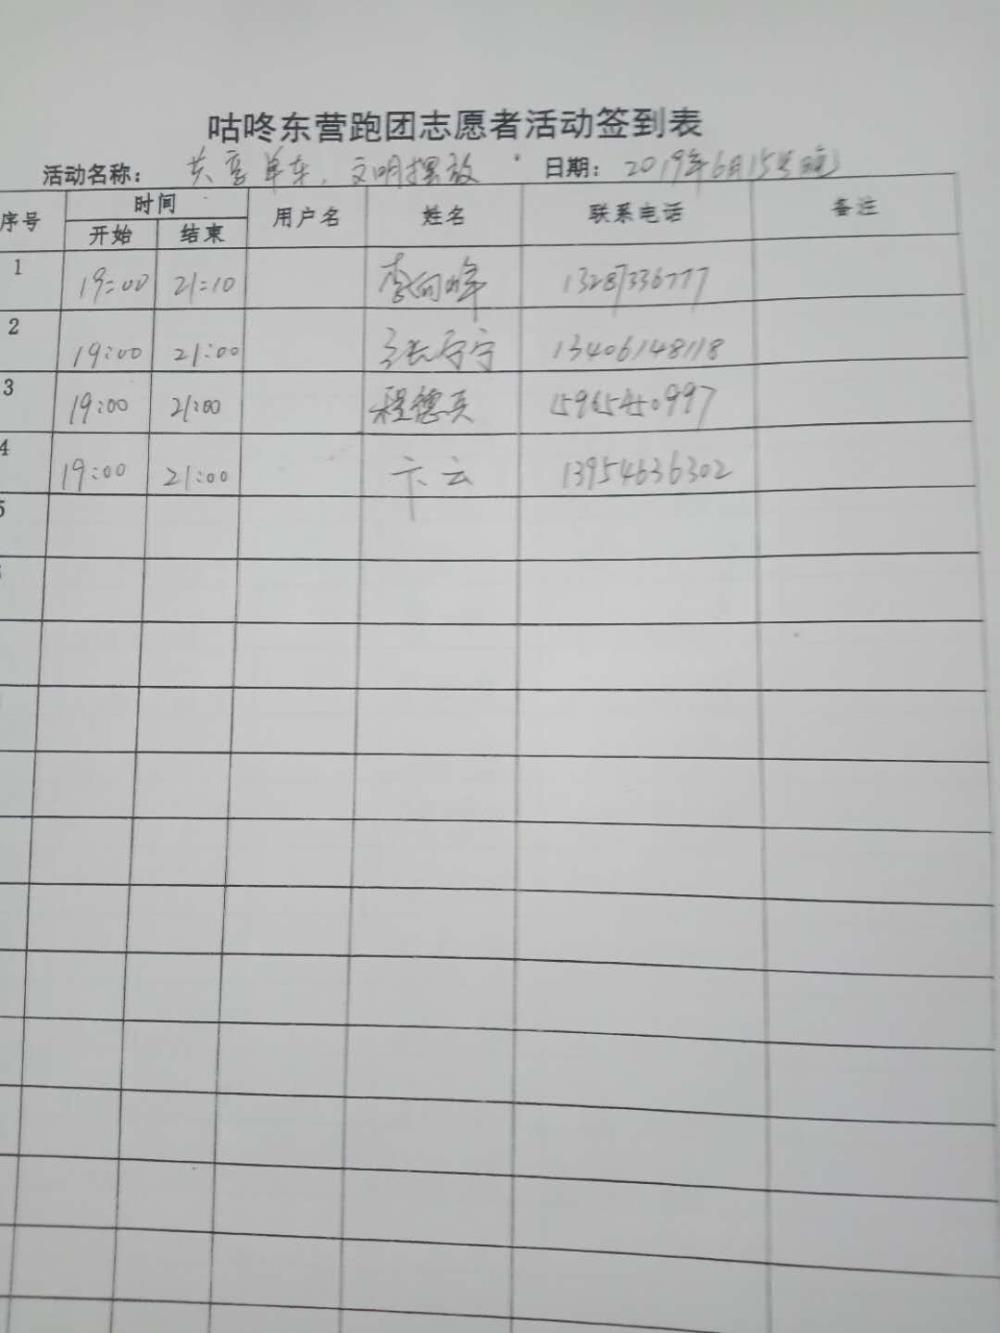 咕咚东营跑团志愿者活动签到表
活动名称: 共享单车,文明摆放 日期: 2019年6月15号晚
序号 时间 用户名 姓名 联系电话 备注
开始 结束
1 19:00 21:10 李向峰 13287336777
2 19:00 21:00 张宁宁 13406148118
3 19:00 21:00 程德兵 15965450997
4 19:00 21:00 卞云 13954636302
5